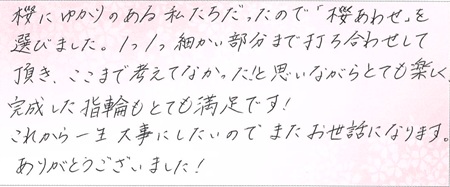 桜にゆかりのある私たちだったので「桜あわせ」を
選びました。1つ1つ細かい部分まで打ち合わせして
頂き、ここまで考えてなかった!と思いながらとても楽しく、
完成した指輪もとても満足です!
これから一生大事にしたいのでまたお世話になります。
ありがとうございました!